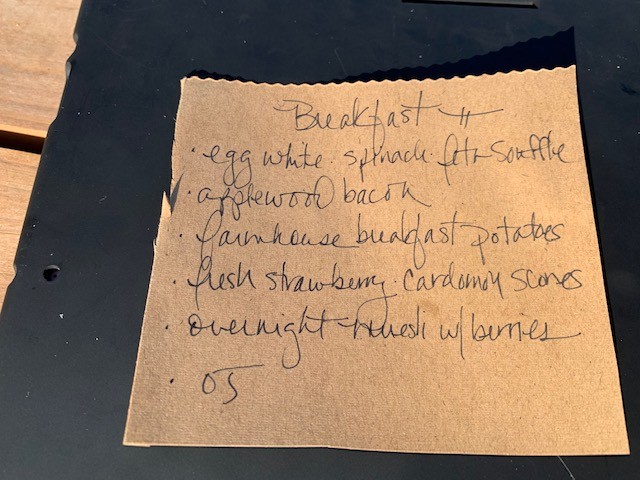 Breakfast #
· egg white · spinach · feta Souffle
· applewood bacon
· farmhouse breakfast potatoes
· fresh strawberry · cardomon scones
· overnight muesli w/ berries
· OJ